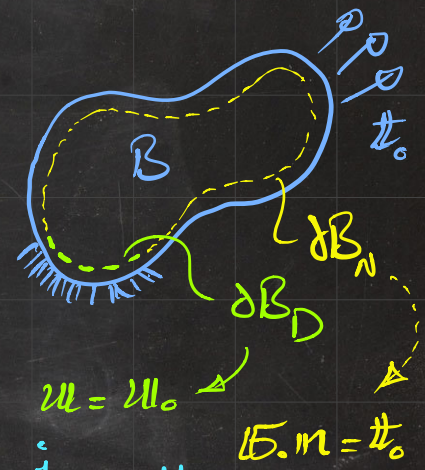 B
t₀
∂B_N
∂B_D
u = u₀
σ.n = t₀